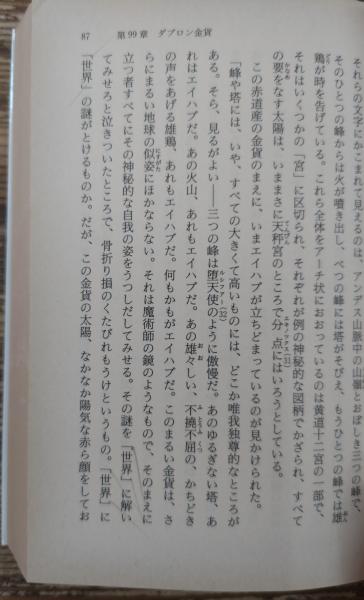 87　第99章　ダブロン金貨
それらの文字にかこまれて見えるのは、アンデス山脈中の山嶺とおぼしき三つの峰で、
そのひとつの峰からは火が噴き出し、べつの峰には塔がそびえ、もうひとつの峰では雄
鶏が時を告げている。これら全体をアーチ状におおっているのは黄道十二宮の一部で、
それはいくつかの「宮」に区切られ、それぞれが例の神秘的な図柄でかざられ、すべて
の要をなす太陽は、いままさに天秤宮のところで分点にはいろうとしている。
この赤道産の金貨のまえに、いまエイハブが立ちどまっているのが見かけられた。
「峰や塔には、いや、すべての大きくて高いものには、どこか唯我独尊的なところが
ある。そら、見るがよい――三つの峰は堕天使のように傲慢だ。あのゆるぎない塔、あ
れはエイハブだ。あの火山、あれもエイハブだ。あの雄々しい、不撓不屈の、かちどき
の声をあげる雄鶏、あれもエイハブだ。何もかもがエイハブだ。このまるい金貨は、さ
らにまるい地球の似姿にほかならない。それは魔術師の鏡のようなもので、そのまえに
立つ者すべてにその神秘的な自我の姿をうつしだしてみせる。その謎を「世界」に解い
てみせろと泣きついたところで、骨折り損のくたびれもうけというもの。「世界」に
「世界」の謎がとけるものか。だが、この金貨の太陽、なかなか陽気な赤ら顔をしてお